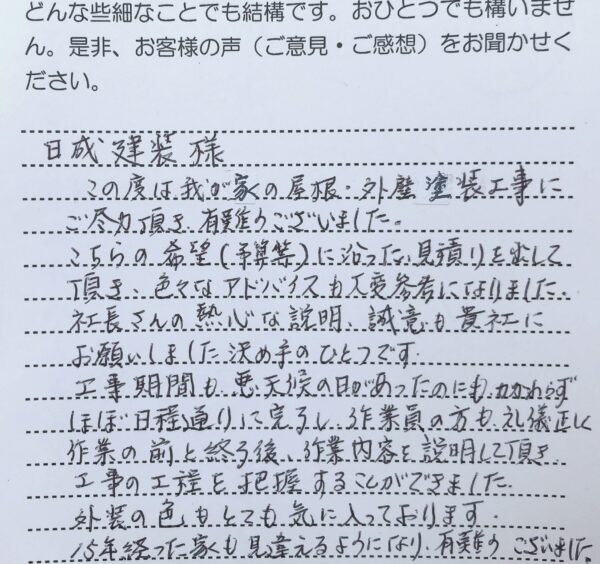 どんな些細なことでも結構です。おひとつでも構いませ
ん。是非、お客様の声（ご意見・ご感想）をお聞かせく
ださい。
日成建装様
この度は我が家の屋根・外壁塗装工事に
ご尽力頂き、有難うございました。
こちらの希望(予算等)に沿った見積りを出して
頂き、色々なアドバイスも大変参考になりました。
社長さんの熱心な説明、誠意も貴社に
お願いしました決め手のひとつです。
工事期間も悪天候の日があったのにもかかわらず
ほぼ日程通りに完了し、作業員の方も礼儀正しく
作業の前と終了後、作業内容を説明して頂き、
工事の工程を把握することができました。
外装の色もとても気に入っております。
15年経った家も見違えるようになり、有難うございました